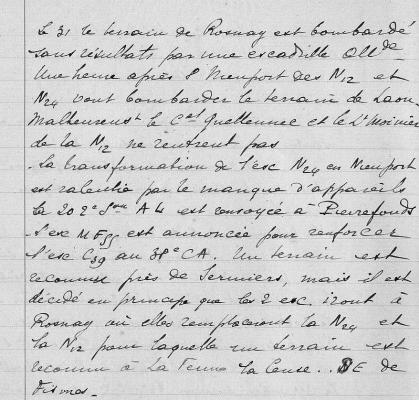 Le 31 le terrain de Rosnay est bombardé
sans résultats par une escadrille Allde
Une heure après 8 Nieuport des N12 et
N24 vont bombarder le terrain de Laon
Malheureust le Cal Quellennec et le Lt
de la N12 ne rentrent pas
La transformation de l'esc N24 en Nieuport
est ralentie par le manque d'appareils
La 202e Son A4 est envoyée à Pierrefonds
L'esc MF55 est annoncée pour renforcer
l'esc C39 au 38e CA. Un terrain est
reconnu près de Sermiers, mais il est
décidé en principe que les 2 esc. iront à
Rosnay où elles remplaceront la N24 et
la N12 pour laquelle un terrain est
reconnu à La Ferme la Cense.. SE de
Fismes.